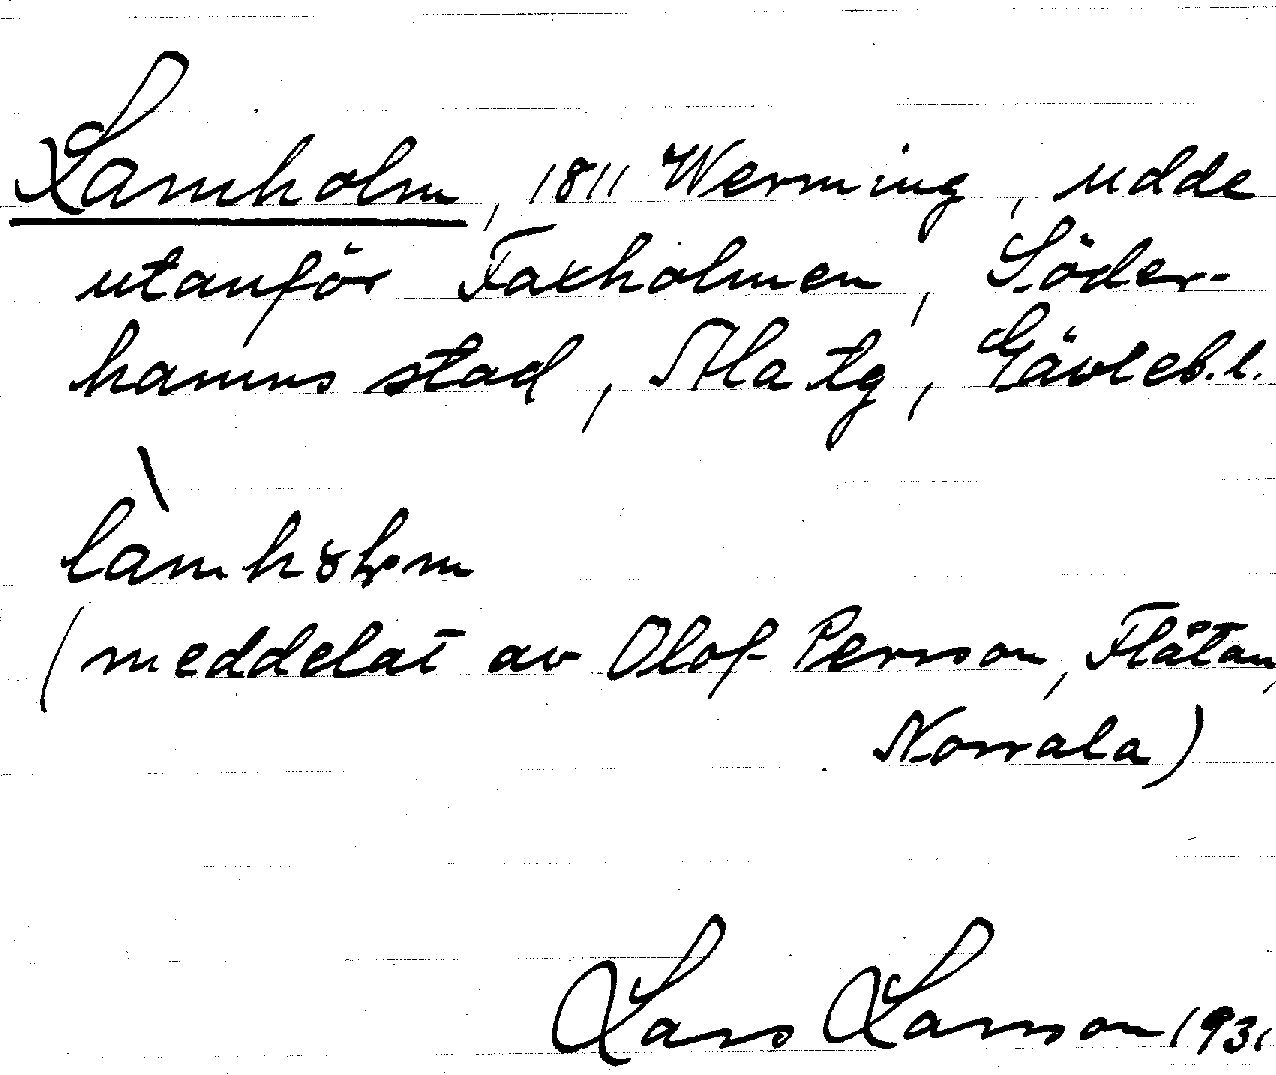 Lamholm, 1811 Werming, udde
utanför Faxholmen, Söder-
hamns stad, Ala tg, Gävleb.l.
(meddelat av Olof Persson, Flätan,
Norrala)
Lars Larsson 1931